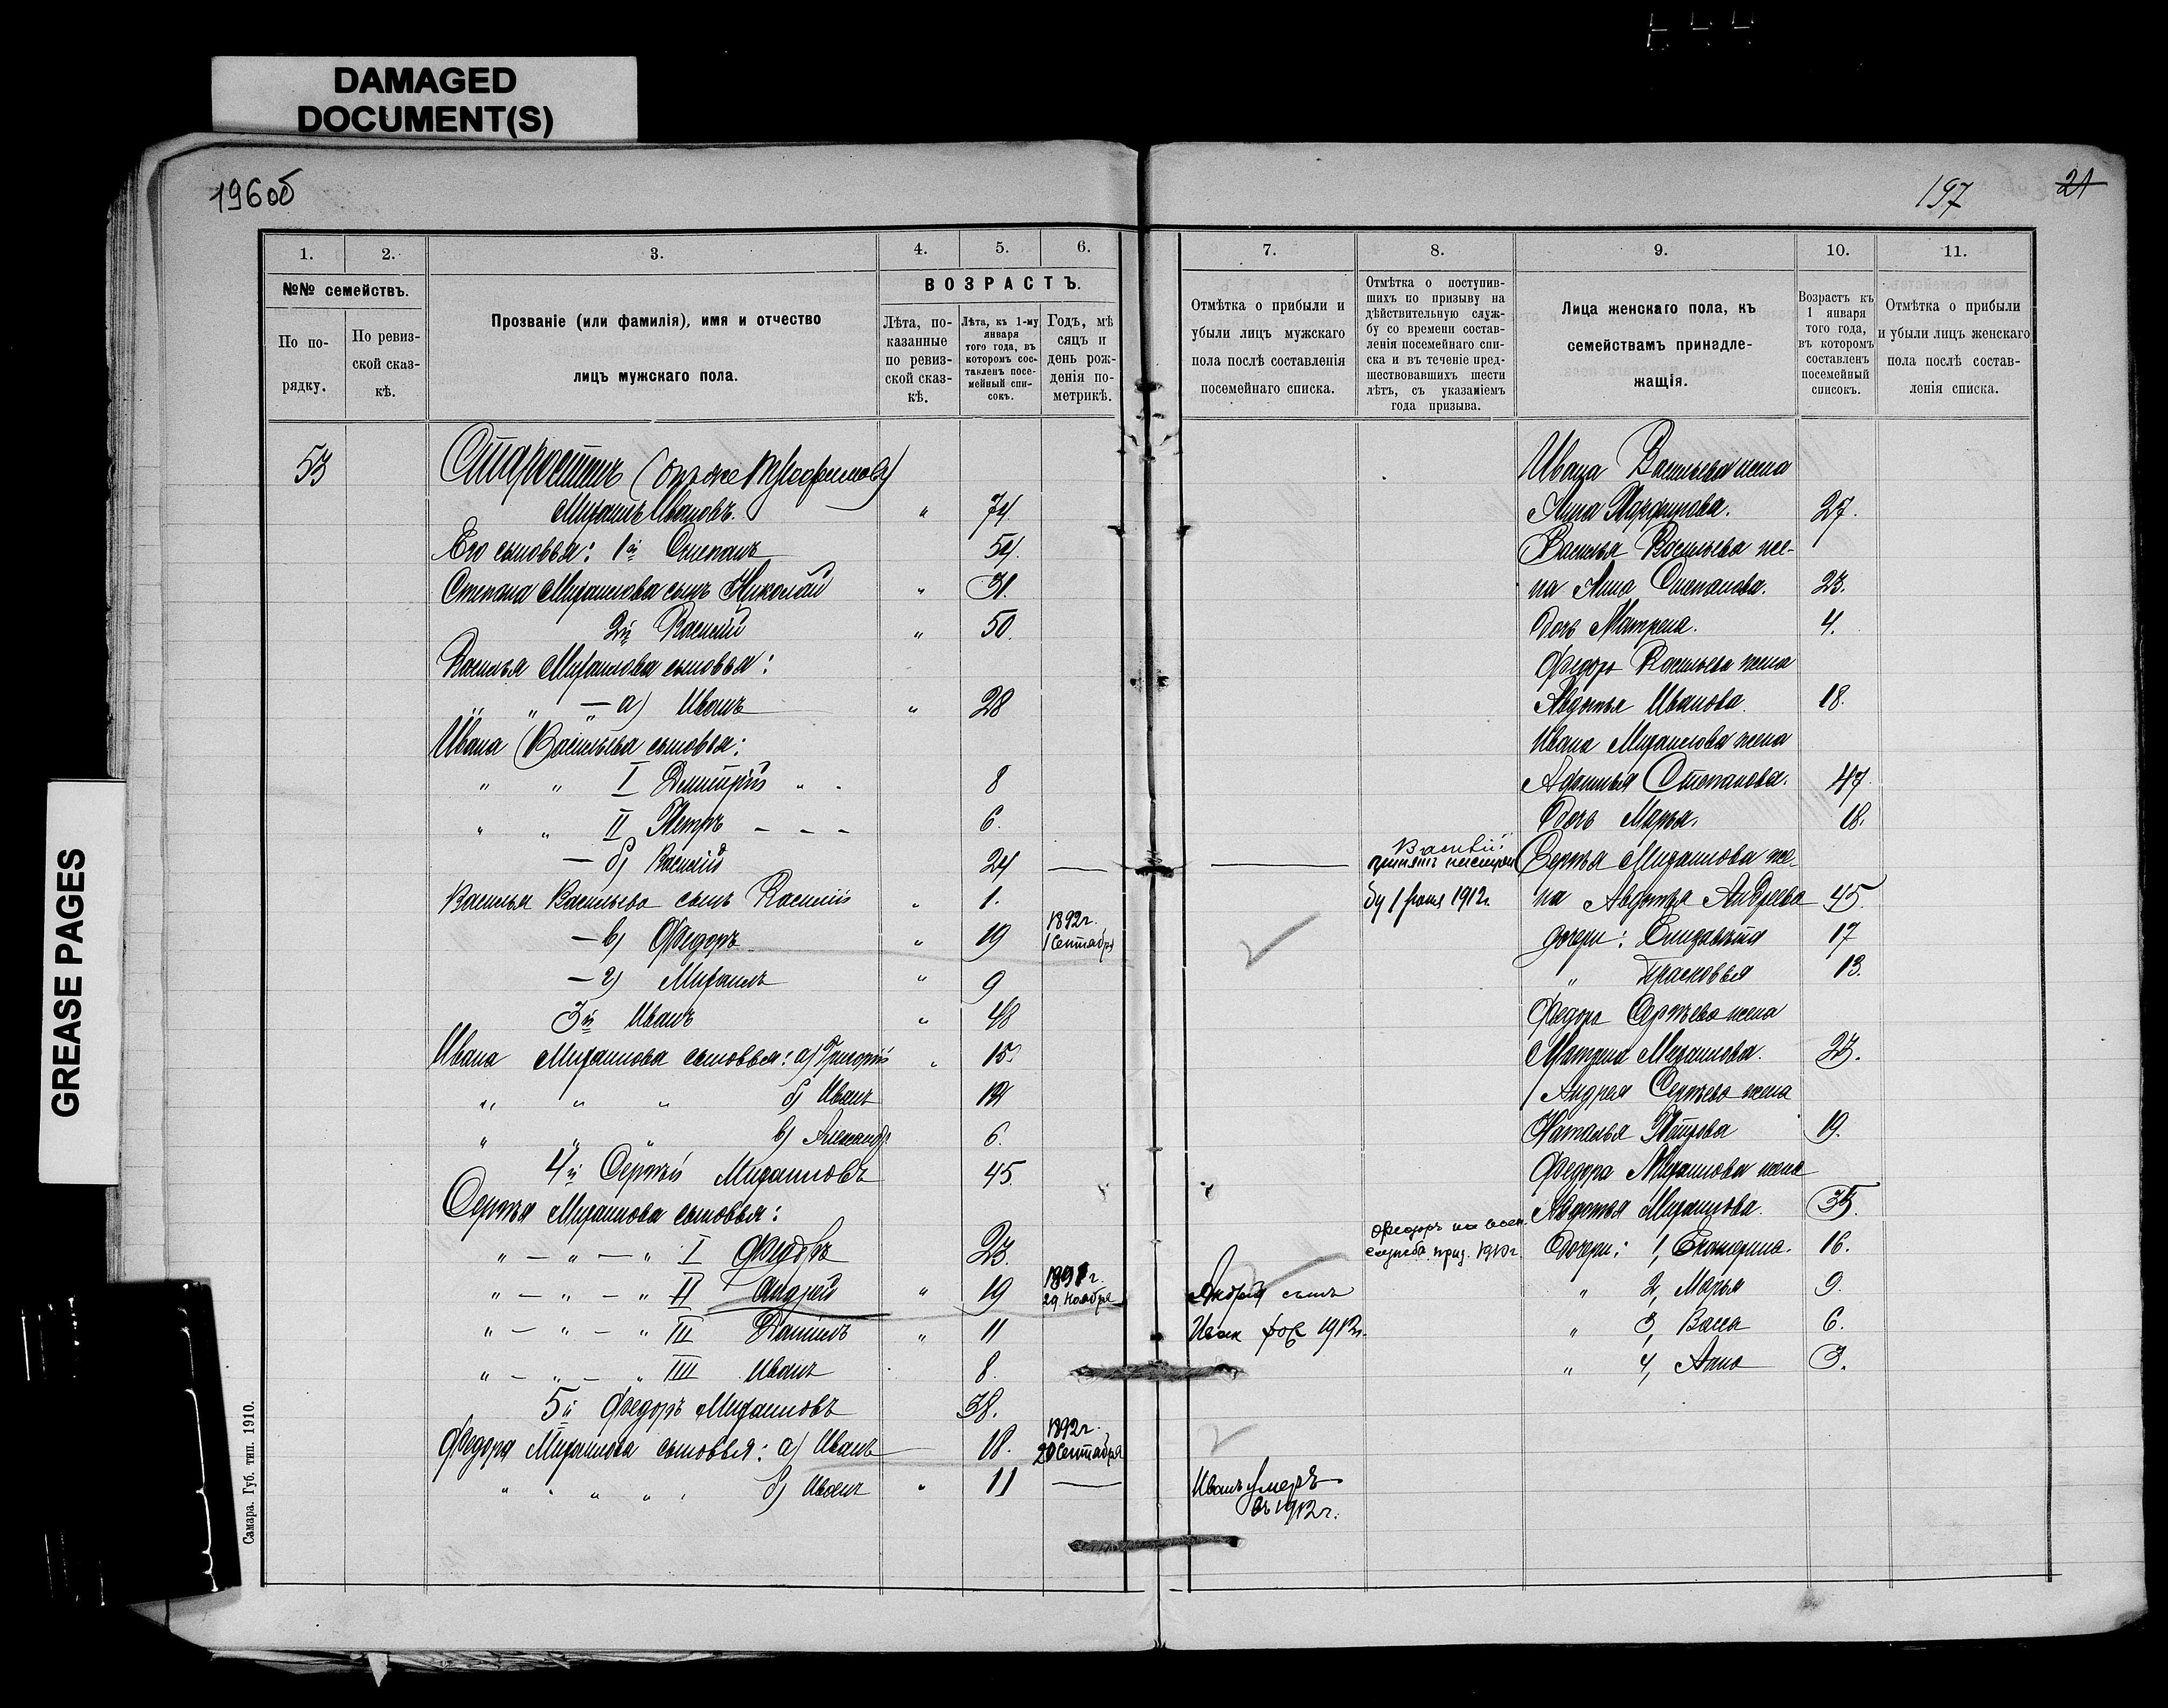 DAMAGED
DOCUMENT(S)
GREASE PAGES
196об
197
21
1.
2.
3.
4.
5.
6.
№№ семействъ.
По по-
рядку.
По ревиз-
ской сказ-
кѣ.
Прозваніе (или фамилія), имя и отчество
лицъ мужскаго пола.
ВОЗРАСТЪ.
Лѣта, по-
казанные
по ревиз-
ской сказ-
кѣ.
Лѣта, къ 1-му
января
того года, въ
которомъ сос-
тавленъ посе-
мейный спи-
сокъ.
Годъ, мѣ
сяцъ и
день рож-
денія по-
метрикѣ.
53
(онъ же Трофимовъ)
Михаилъ Ивановъ. " 74
Его сыновья: 1й Степанъ 54
Степана Михаилова сынъ Николай " 31.
2й Василій " 50.
Василья Михаилова сыновья:
" " — а) Иванъ " 28
Ивана Васильева сыновья:
" " I Дмитрій " " 8
" " II Петръ - - - 6.
— б) Василій 24 —
Василья Васильева сынъ Василій " 1.
— в) Федоръ " 19 1892г. 1 Сентября
— г) Михаилъ " 9
3й Иванъ " 48
Ивана Михаилова сыновья: а) Григорій " 15
" " " б) Иванъ
" " " в) Александръ 6.
4й Сергѣй Михаиловъ 45.
Сергѣя Михаилова сыновья:
" — " — " I Федоръ 23.
" — " — " II Андрей " 19 1891г. 29 Ноября
" — " — " III Даніилъ " 11
" — " — " IIII Иванъ 8.
5й Федоръ Михаиловъ 38.
Федора Михаилова сыновья: а) Иванъ 18. 1892г. 20 Сентября
" " " " б) Иванъ " 11 —
Самара. Губ. тип. 1910.
7.
8.
9.
10.
11.
Отмѣтка о прибыли и
убыли лицъ мужскаго
пола послѣ составленія
посемейнаго списка.
Отмѣтка о поступив-
шихъ по призыву на
дѣйствительную служ-
бу со времени состав-
ленія посемейнаго спи-
ска и въ теченіе пред-
шествовавшихъ шести
лѣтъ, съ указаніемъ
года призыва.
Лица женскаго пола, къ
семействамъ принадле-
жащія.
Возрастъ къ
1 января
того года,
въ которомъ
составленъ
посемейный
списокъ.
Отмѣтка о прибыли
и убыли лицъ женскаго
пола послѣ состав-
ленія списка.
Ивана Васильева жена
Анна 27.
Василья Васильева же-
на Анна Степанова. 23.
Дочь Матрена. 4.
Федора Васильева жена
Авдотья Иванова. 18.
Ивана Михаилова жена
Афимья Степанова. 47.
Дочь Марья. 18.
Василій
принятъ
1912г.
Сергѣя Михаилова же-
на Авдотья Андреева 45.
дочери: Елизавета 17
" Прасковья 13.
Федора Сергѣева жена
Матрена Михаилова. 23.
Андрея Сергѣева жена
Наталья Петрова 19.
Федора Михаилова жена
Авдотья Михаилова. 35.
Федоръ на воен.
служба приз. 1910г.
Дочери: 1, Екатерина. 16.
" 2, Марья 9.
" 3, Васса 6.
" 4, Анна 3.
Андрея сынъ
1912г.
Иванъ умеръ
въ 1912г.